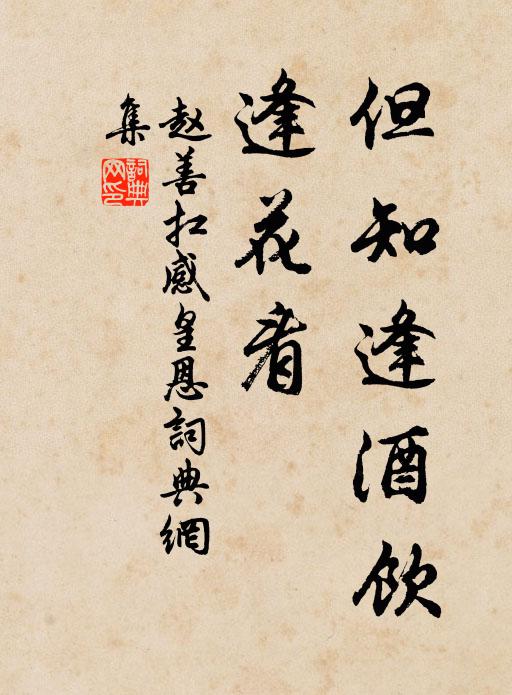 但知逢酒飲
逢花看
赵善扛感皇恩詞典網
集
詞典
网印